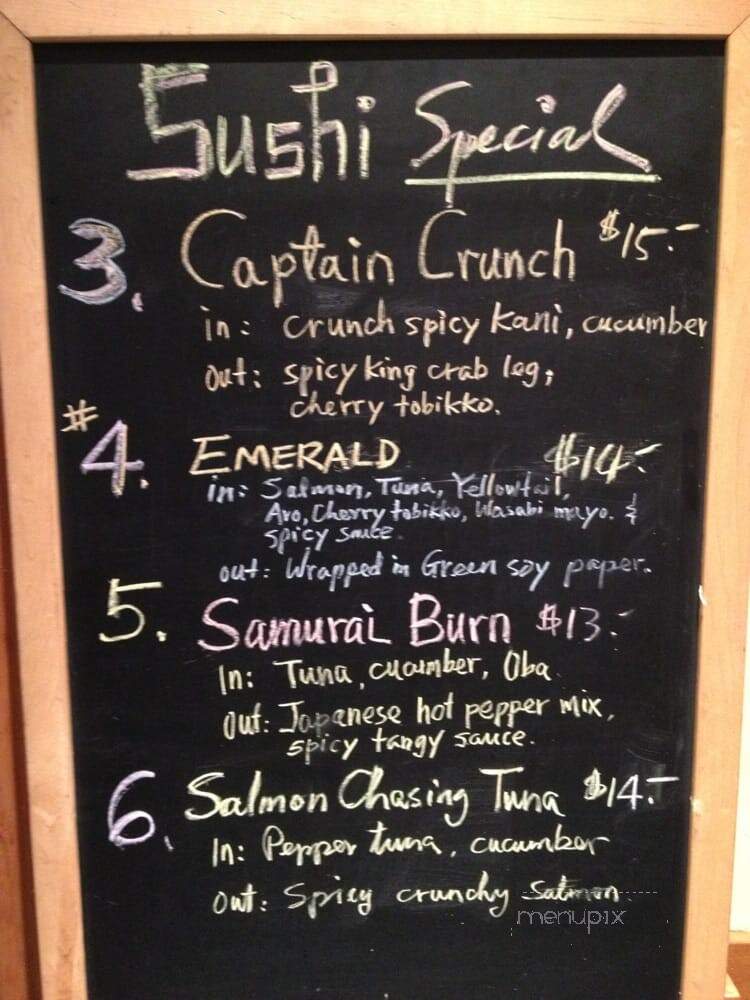 Sushi Special
3. Captain Crunch $15.-
in: crunch spicy kani, cucumber
out: spicy king crab leg,
cherry tobikko.
#4. EMERALD $14.-
in: Salmon, Tuna, Yellowtail,
Avo, Cherry tobikko, Wasabi mayo. &
spicy sauce.
out: Wrapped in Green soy paper.
5. Samurai Burn $13.-
In: Tuna, cucumber, Oba
out: Japanese hot pepper mix,
spicy tangy sauce.
6. Salmon Chasing Tuna $14.-
In: Pepper tuna, cucumber
out: Spicy crunchy Salmon
menupix